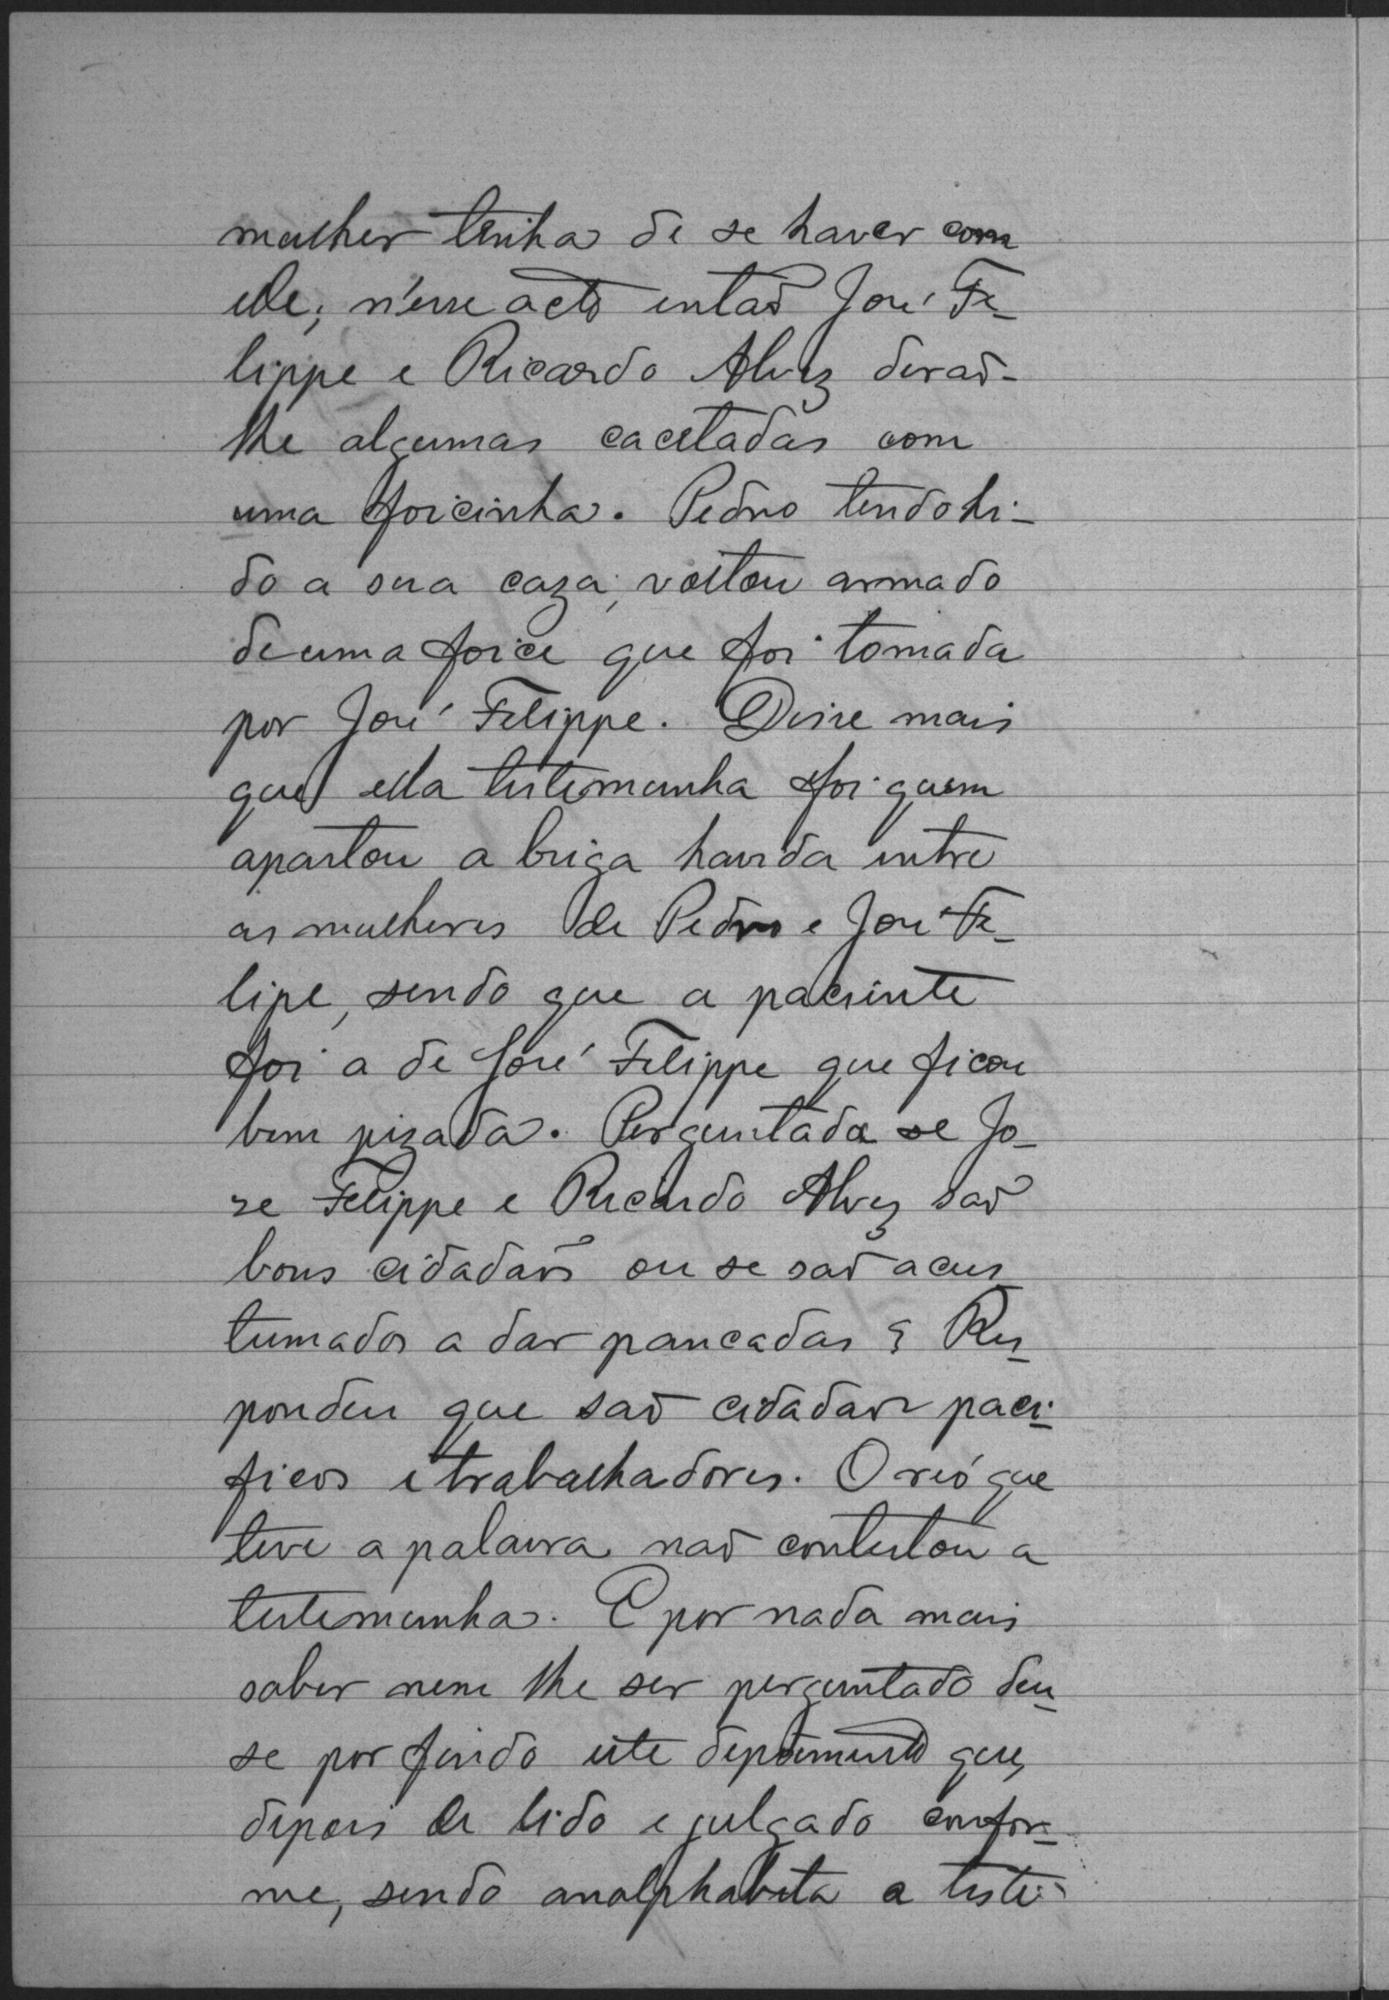 mulher tinha de se haver com
elle; n'esse acto então José Fe-
lippe e Ricardo Alvez derão-
lhe algumas cacetadas com
uma foicinha. Pedro tendo hi-
do a sua caza, voltou armado
de uma foice que foi tomada
por José Felippe. Disse mais
que ella testemunha foi quem
apartou a briga havida entre
as mulheres de Pedro e José Fe-
lipe, sendo que a paciente
foi a de José Felippe que ficou
bem pizada. Perguntada se Jo-
se Felippe e Ricardo Alvez são
bons cidadãos ou se são acus
tumados a dar pancadas? Res
pondeu que são cidadãos paci-
ficos e trabalhadores. O réo que
teve a palavra não contestou a
testemunha. E por nada mais
saber nem lhe ser perguntado deu
se por findo este depoimento que,
depois de lido e julgado confor-
me, sendo analphabeta a teste-